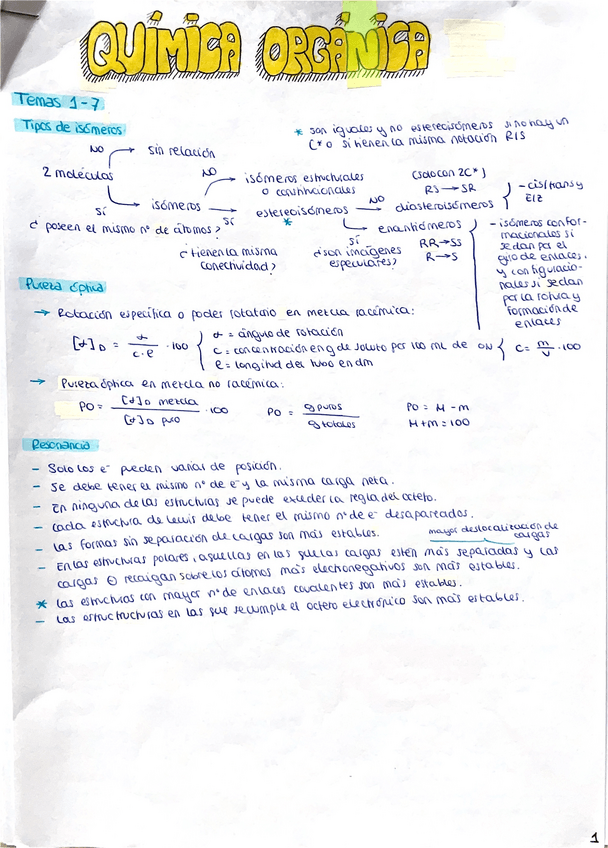 QUÍMICA ORGÁNICA
Temas 1-7
Tipos de isómeros:
* son iguales y no estereoisómeros si no hay un
C* o si tienen la misma notación R/S
NO → sin relación
2 moléculas
NO → isómeros estructurales
o constitucionales
(solo con 2C*)
RS → SR
SÍ → isómeros
SÍ → estereoisómeros
*
NO → diasteroisómeros
- cis/trans y
E/Z
¿ poseen el mismo nº de átomos ?
SÍ → enantiómeros
RR → SS
R → S
¿ tienen la misma
conectividad?
¿son imágenes
especulares?
- isómeros confor-
macionales si
se dan por el
giro de enlaces.
y configuracio-
nales si se dan
por la rotura y
formación de
enlaces
Pureza óptica
→ Rotación específica o poder rotatorio en mezcla racémica:
[α]D = α / c·l · 100
α = ángulo de rotación
c = concentración en g de soluto por 100 mL de
l = longitud del tubo en dm
C = m / v · 100
→ Pureza óptica en mezcla no racémica:
PO = [α]D mezcla / [α]D puro · 100
PO = g puros / g totales
PO = M - m
M + m = 100
Resonancia
- Solo los e⁻ pueden variar de posición.
- Se debe tener el mismo nº de e⁻ y la misma carga neta.
- En ninguna de las estructuras se puede exceder la regla del octeto.
- Cada estructura de lewis debe tener el mismo nº de e⁻ desapareados.
- Las formas sin separación de cargas son más estables.
mayor deslocalización de
cargas
- En las estructuras polares, aquellas en las que las cargas estén más separadas y las
cargas ⊖ recaigan sobre los átomos más electronegativos son más estables.
* Las estructuras con mayor nº de enlaces covalentes son más estables.
- Las estructructuras en las que se cumple el octeto electrónico son más estables.
1